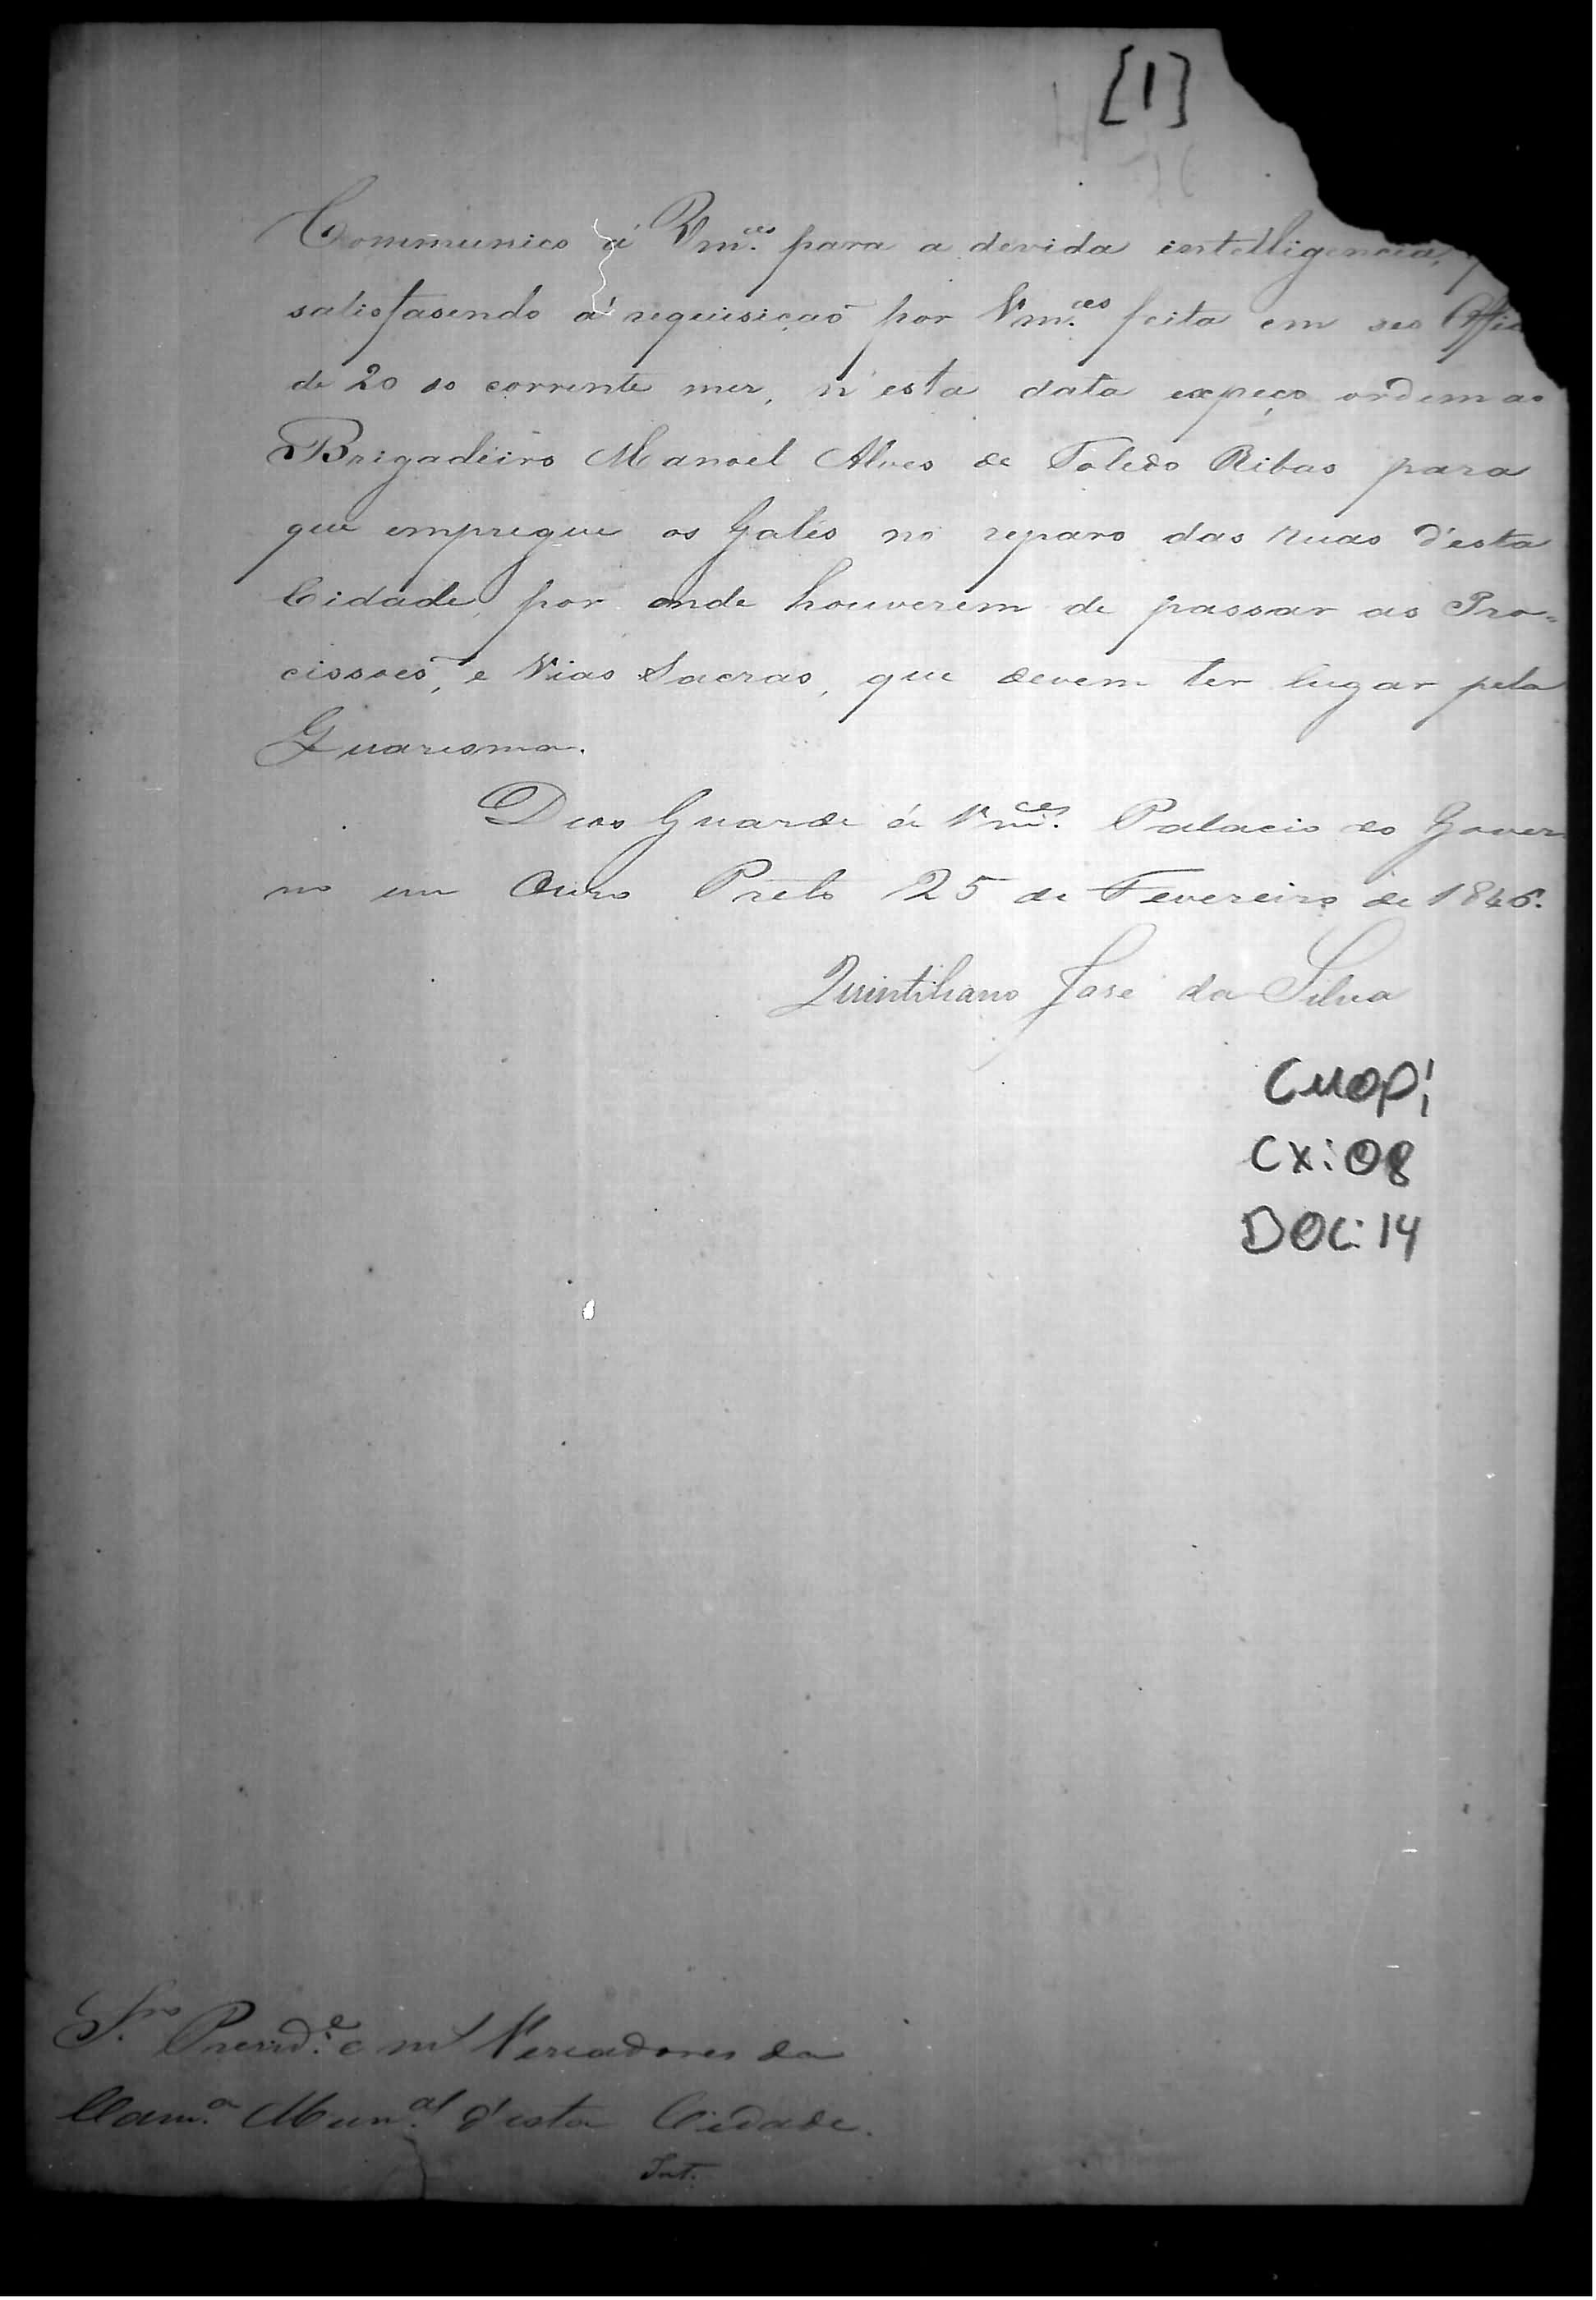 [1]
Communico á Vm.ces para a devida intelligencia,
satisfasendo á requisicaõ por Vm.ces feita em seo Offic
de 20 do corrente mez, n'esta data expeço ordem ao
Brigadeiro Manoel Alves de Toledo Ribas para
que empregue os Galés no reparo das ruas d'esta
Cidade, por onde houverem de passar as Pro=
cissoẽs, e Vias Sacras, que devem ter lugar pela
Quaresma.
Deos Guarde á Vm.ces Palacio do Gover
no em Ouro Preto 25 de Fevereiro de 1846.
Quintiliano José da Silva
CMOP;
CX: 08
DOC: 14
S.res Presid.e e m Vereadores da
Cam.a Mun.al d'esta Cidade.